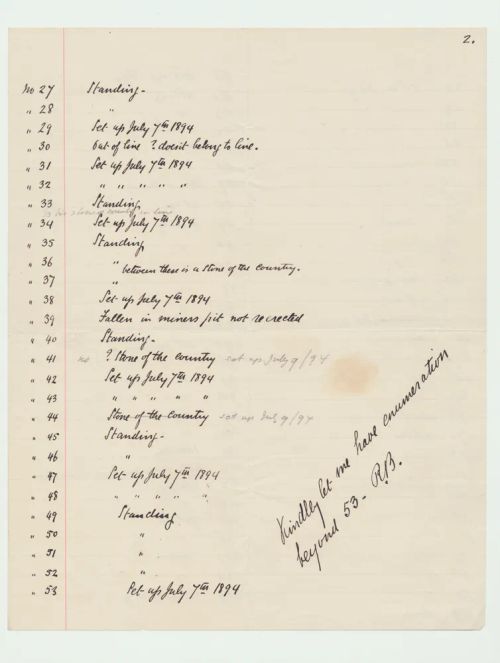 2.
No 27 Standing-
" 28 "
" 29 Set up July 7th 1894
" 30 Out of line ? doesnt belong to line.
" 31 Set up July 7th 1894
" 32 " " " " "
" 33 Standing
" 34 Set up July 7th 1894
" 35 Standing
" 36 "
between these is a stone of the country.
" 37 "
" 38 Set up July 7th 1894
" 39 Fallen in miners pit not re erected
" 40 Standing-
" 41 no ? Stone of the country set up July 9/94
" 42 Set up July 7th 1894
" 43 " " " " "
" 44 Stone of the country set up July 9/94
" 45 Standing-
" 46 "
" 47 Set up July 7th 1894
" 48 " " " " "
" 49 Standing
" 50 "
" 51 "
" 52 "
" 53 Set up July 7th 1894
Kindly let me have enumeration
beyond 53- R.B.